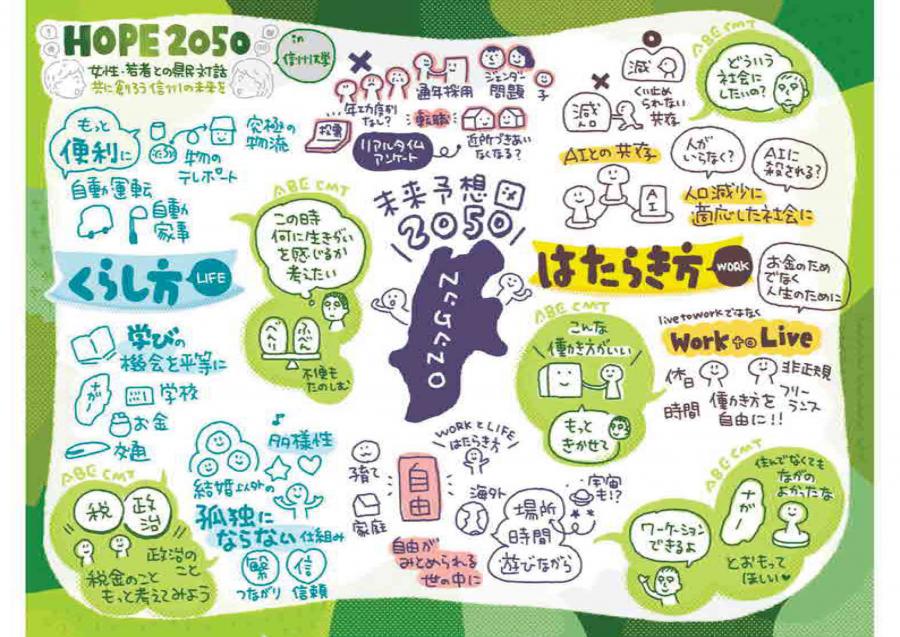 HOPE 2050
in
信州大学
女性・若者との県民対話
共に創ろう信州の未来を
年功序列
なし?
通年採用
ジェンダー
問題
子
投票
転職
リアルタイム
アンケート
近所づきあい
なくなる?
減
減
人口
くい止め
られない
共存
ABE CMT
どういう
社会に
したいの?
もっと
便利に
物の
テレポート
究極の
物流
自動運転
自動
家事
ABE CMT
この時
何に生きがい
を感じるか
考えたい
べんり
ふべん
不便も
たのしむ
未来予想図
2050
ナガノ
AIとの共存
AI
人が
いらなく?
AIに
殺される?
人口減少に
適応した社会に
くらし方
LIFE
はたらき方
WORK
お金のため
でなく
人生のために
live to workではなく
Work to Live
休日
時間
働き方を
自由に!!
非正規
フリー
ランス
ABE CMT
こんな
働き方がいい
もっと
きかせて
学びの
機会を平等に
ナガノ
学校
お金
交通
ABE CMT
税
政治
政治の
こと
税金のこと
もっと考えてみよう
多様性
結婚以外の
孤独に
ならない仕組み
繋
つながり
信
信頼
WORKとLIFE
はたらき方
子育て
家庭
自由
海外
宇宙
も!?
場所
時間
遊びながら
自由が
みとめられる
世の中に
ABE CMT
住んでなくても
ながの
よかったな
ナガノ
とおもって
ほしい
ワーケーション
できるよ